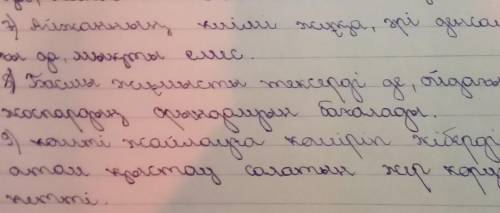 7) Айжанның киімі жұқа, әрі
де, мықты емес.
8) Басшы жұмысты тексерді де, ойдағы
жоспардың орындалуын бағалады.
9) көшті жайлауға көшіріп жіберді
атам қыстау салатын жер көру
кетті.